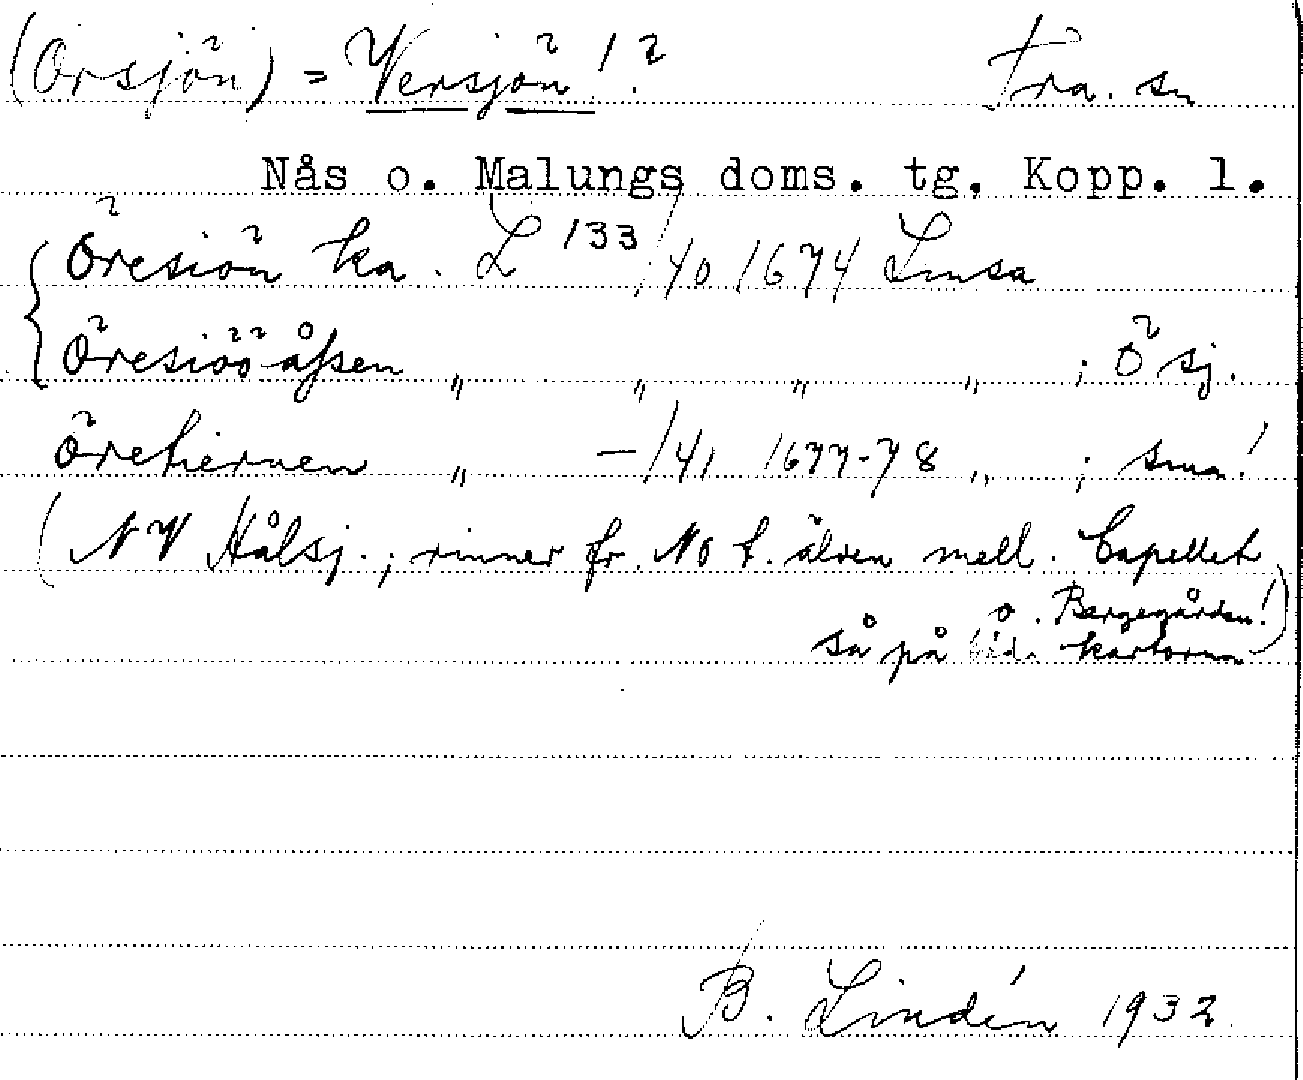 (Örsjön) = Versjön!? Tra. sn
Nås o. Malungs doms. tg. Kopp. l.
Öresiön ka. L 133/40 1674 Limsa
Öresiöö åssen „ „ „ „ ; Ö sj.
Öretiernen „ —/41 1677-78 „ ; små!
(NV Hålsj.; rinner fr. NO t. älven mell. Capellet
o. Bergegården!)
så på båd. kartorna
B. Lindén 1932